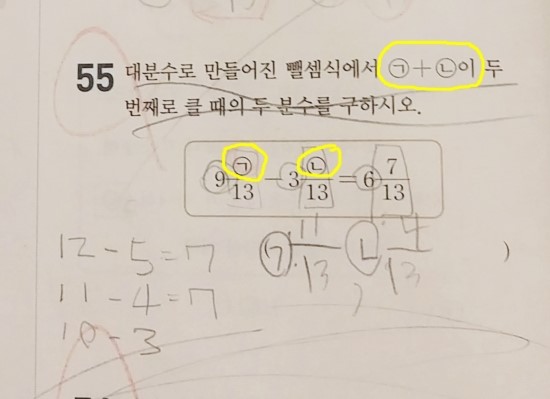 55 대분수로 만들어진 뺄셈식에서 ㉠+㉡이 두
번째로 클 때의 두 분수를 구하시오.
9 ㉠/13 - 3 ㉡/13 = 6 7/13
12-5=7
11-4=7
10-3
㉠ 11/13 , ㉡ 4/13 )